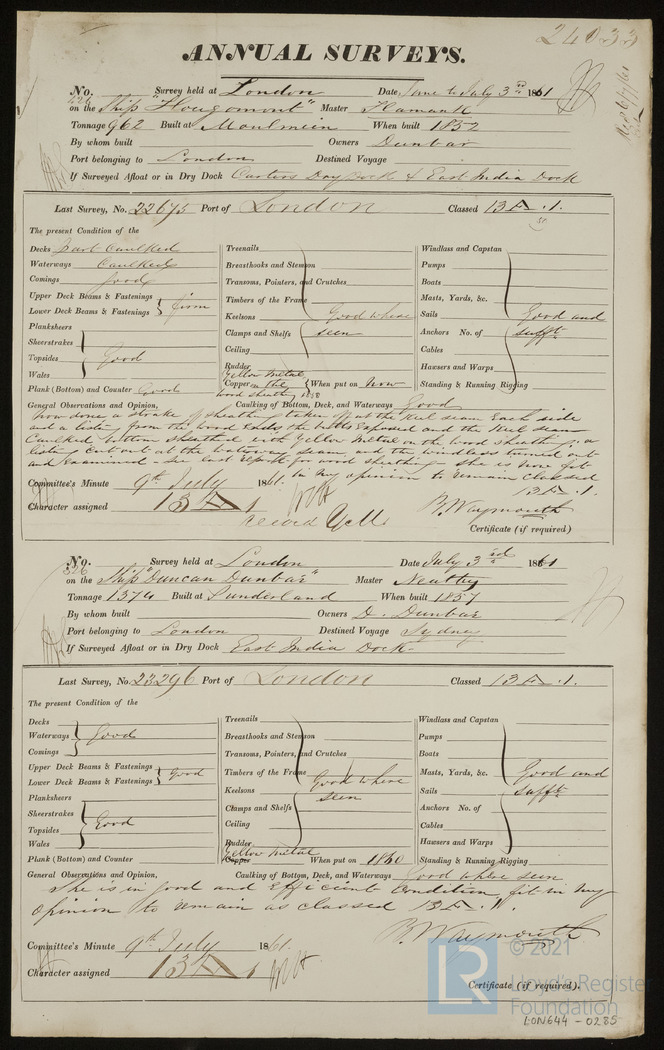 24033
ANNUAL SURVEYS.
Rec 6/7/61
No. 526 Survey held at London Date June to July 3rd 1861
on the Ship "Hougomont" Master
Tonnage 962 Built at Moulmein When built 1852
By whom built Owners Dunbar
Port belonging to London Destined Voyage
If Surveyed Afloat or in Dry Dock Carters Dry Dock & East India Dock
Last Survey, No. 22675 Port of London Classed 13 A .1.
The present Condition of the
Decks part Caulked
Waterways Caulked
Comings good
Upper Deck Beams & Fastenings
Lower Deck Beams & Fastenings firm
Planksheers
Sheerstrakes
Topsides Good
Wales
Plank (Bottom) and Counter Good
Treenails
Breasthooks and Stemson
Transoms, Pointers, and Crutches
Timbers of the Frame
Keelsons Good where
Clamps and Shelfs seen
Ceiling
Rudder
Yellow Metal
Copper on the When put on Now
wood sheathing 1858
Windlass and Capstan
Pumps
Boats
Masts, Yards, &c.
Sails Good and
Anchors No. of sufft
Cables
Hawsers and Warps
Standing & Running Rigging
General Observations and Opinion, Caulking of Bottom, Deck, and Waterways Good
Now done a strake of sheathing taken off at the Keel seam Each side
and a listing from the wood Ends, the bolts Exposed and the Keel seam
Caulked bottom sheathed with Yellow Metal on the wood sheathing, a
listing cut out at the waterway seam and the windlass turned out
and Examined - See last report for wood sheathing - She is now fit
in my opinion to remain classed
13 A .1.
Committee's Minute 9th July 1861.
Character assigned 13 A 1
record YM
B. Waymouth
Certificate (if required)
No. 526 Survey held at London Date July 3rd 1861
on the Ship "Duncan Dunbar" Master
Tonnage 1374 Built at Sunderland When built 1857
By whom built Owners D. Dunbar
Port belonging to London Destined Voyage Sydney
If Surveyed Afloat or in Dry Dock East India Dock-
Last Survey, No. 23296 Port of London Classed 13 A .1.
The present Condition of the
Decks
Waterways Good
Comings
Upper Deck Beams & Fastenings
Lower Deck Beams & Fastenings Good
Planksheers
Sheerstrakes
Topsides Good
Wales
Plank (Bottom) and Counter
Treenails
Breasthooks and Stemson
Transoms, Pointers, and Crutches
Timbers of the Frame Good where
Keelsons seen
Clamps and Shelfs
Ceiling
Rudder
Yellow Metal
Copper When put on 1860
Windlass and Capstan
Pumps
Boats
Masts, Yards, &c. Good and
Sails sufft
Anchors No. of
Cables
Hawsers and Warps
Standing & Running Rigging
General Observations and Opinion, Caulking of Bottom, Deck, and Waterways Good where seen
She is in good and Efficient Condition, fit in my
opinion to remain as classed 13 A .1.
B. Waymouth
Committee's Minute 9th July 1861.
Character assigned 13 A 1
Certificate (if required).
LR
© 2021
Lloyd's Register
Foundation
LON644 - 0285